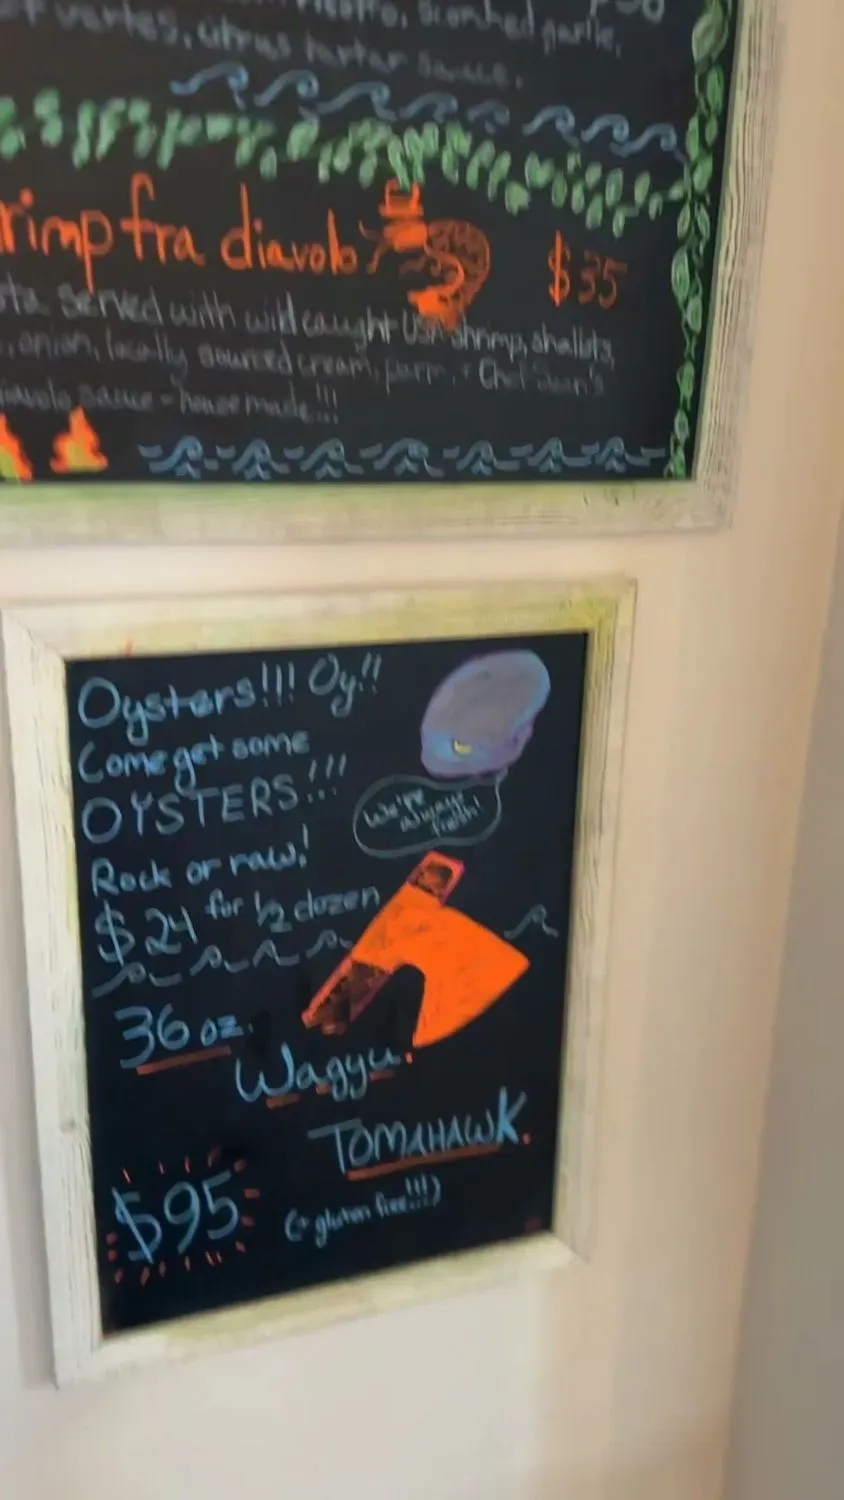 scorched garlic,
vertes, citrus tartar sauce.
rimp fra diavolo $35
served with wild caught USA shrimp, shallots,
onion, locally sourced cream, parm, + Chef Sean's
diavolo sauce - house made!!!
Oysters!!! Oy!!
Come get some
OYSTERS!!!
We're
always
fresh!
Rock or raw!
$24 for 1/2 dozen
36 oz.
Wagyu.
TOMAHAWK.
$95 (gluten free!!!)